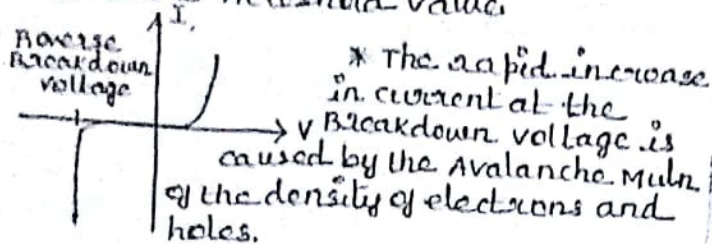 threshold value.
I.
Reverse
Breakdown
voltage
* The rapid increase
in current at the
V Breakdown voltage is
caused by the Avalanche Muln
of the density of electrons and
holes.